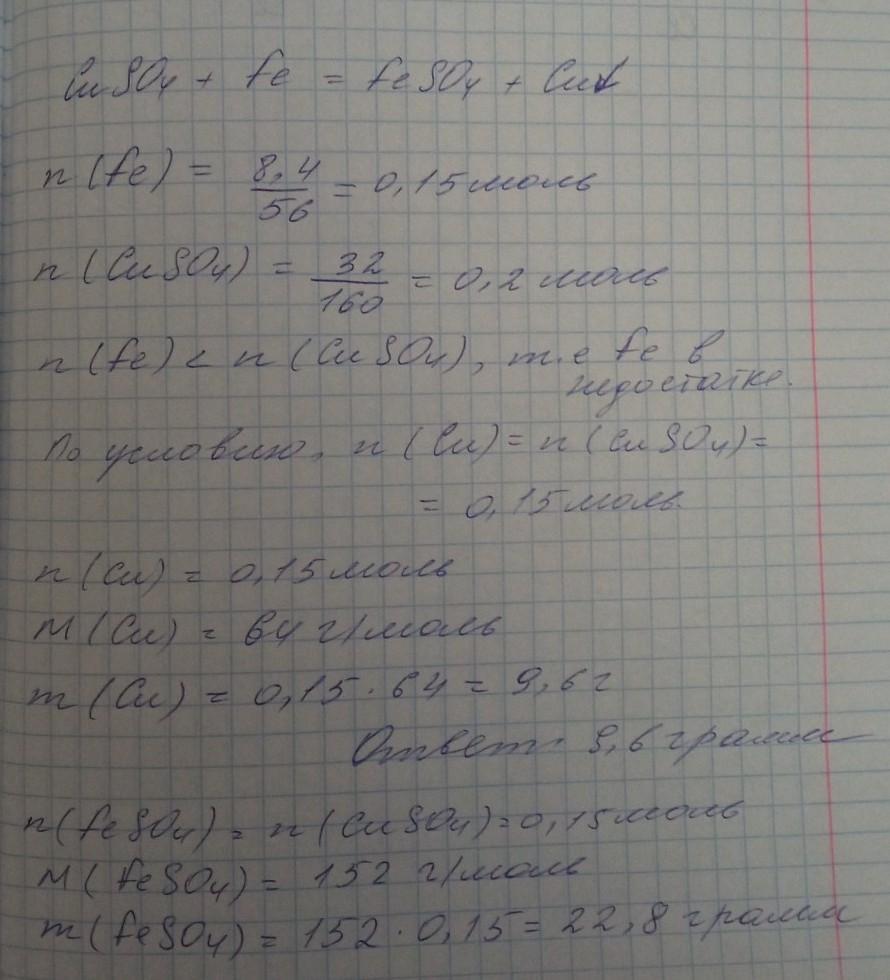 CuSO₄ + Fe = FeSO₄ + Cu↓
n (Fe) = 8,4/56 = 0,15 моль
n (CuSO₄) = 32/160 = 0,2 моль
n (Fe) < n (CuSO₄), т.е Fe в
недостатке.
По условию, n (Cu) = n (CuSO₄) =
= 0,15 моль.
n (Cu) = 0,15 моль
M (Cu) = 64 г/моль
m (Cu) = 0,15 · 64 = 9,6 г
Ответ: 9,6 грамм
n (FeSO₄) = n (CuSO₄) = 0,15 моль
M (FeSO₄) = 152 г/моль
m (FeSO₄) = 152 · 0,15 = 22,8 грамм